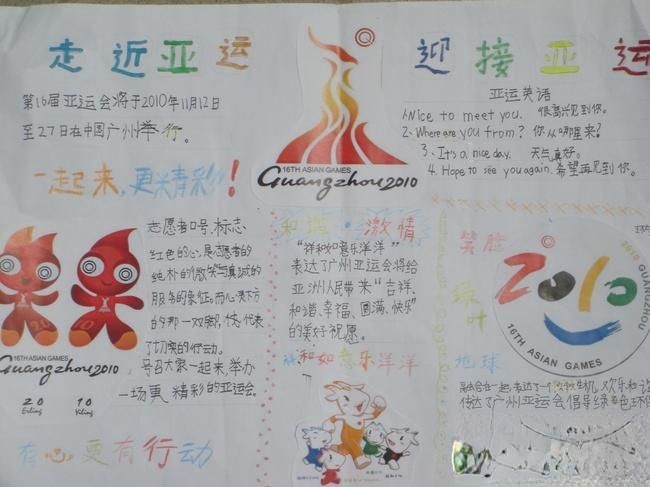 走近亚运
迎接亚运
第16届亚运会将于2010年11月12日
至27日在中国广州举行。
一起来,更精彩!
16TH ASIAN GAMES
Guangzhou 2010
亚运英语
1.Nice to meet you. 很高兴见到你。
2.Where are you from? 你从哪里来?
3、It's a nice day. 天气真好。
4. Hope to see you again. 希望再见到你。
16TH ASIAN GAMES
Guangzhou 2010
2 0 1 0
志愿者口号、标志
红色的心,是志愿者的
纯朴的微笑与真诚的
服务的象征,而心形下方
的那一双脚,代表
了切实的行动。
号召大家一起来,举办
一场更精彩的亚运会。
有心更有行动
和谐·激情
“祥和如意乐洋洋”
表达了广州亚运会将给
亚洲人民带来“吉祥、
和谐、幸福、圆满、快乐”
的美好祝愿。
祥和如意乐洋洋
笑脸
绿叶
地球
2010
2010 GUANGZHOU
16TH ASIAN GAMES
融合在一起,表达了一个
生机,欢乐和谐
传达了广州亚运会倡导绿色环保